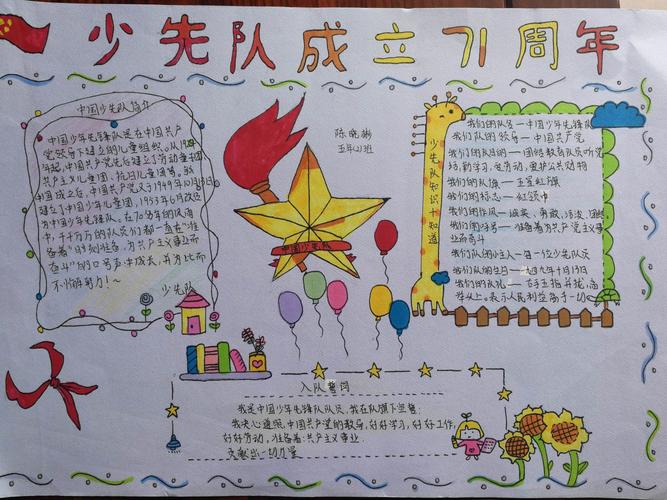 少先队成立71周年
中国少先队简介
中国少年先锋队是在中国共产
党领导下建立的儿童组织。从1924
年起，中国共产党先后建立了劳动童子团
共产主义儿童团、抗日儿童团等。新
中国成立之后，中国共产党又于1949年10月13日
建立了中国少年儿童团，1953年6月改名
为中国少年先锋队。在70多年的风雨
中，千千万万的队员们都一直在“准
备着”“时刻准备，为共产主义事业而
奋斗”的口号声中成长，并为此而
不懈努力！～
少先队
陈晓彬
五年(2)班
中国少先队
少先队知识十知道
我们的队名一中国少年先锋队
我们的领导一中国共产党
我们的队目的一团结教育队员听党
话，勤学习，爱劳动，爱护公共财物
我们的队旗一五星红旗
我们的标志一红领巾
我们的作风一诚实、勇敢、活泼、团结
我们的呼号一准备着为共产主义事
业而奋斗
我们队的小主人一每一位少先队员
我们队的生日一一九四九年10月13日
我们的队礼一右手五指并拢，高
举头上。表示人民利益高于一切
入队誓词
我是中国少年先锋队队员，我在队旗下宣誓：
我决心遵照中国共产党的教导，好好学习，好好工作，
好好劳动，准备着：为共产主义事业，
贡献出一切力量